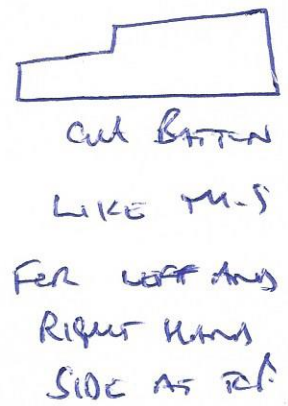 CUT BATTEN
LIKE THIS
FOR LEFT AND
RIGHT HAND
SIDE AT TOP.